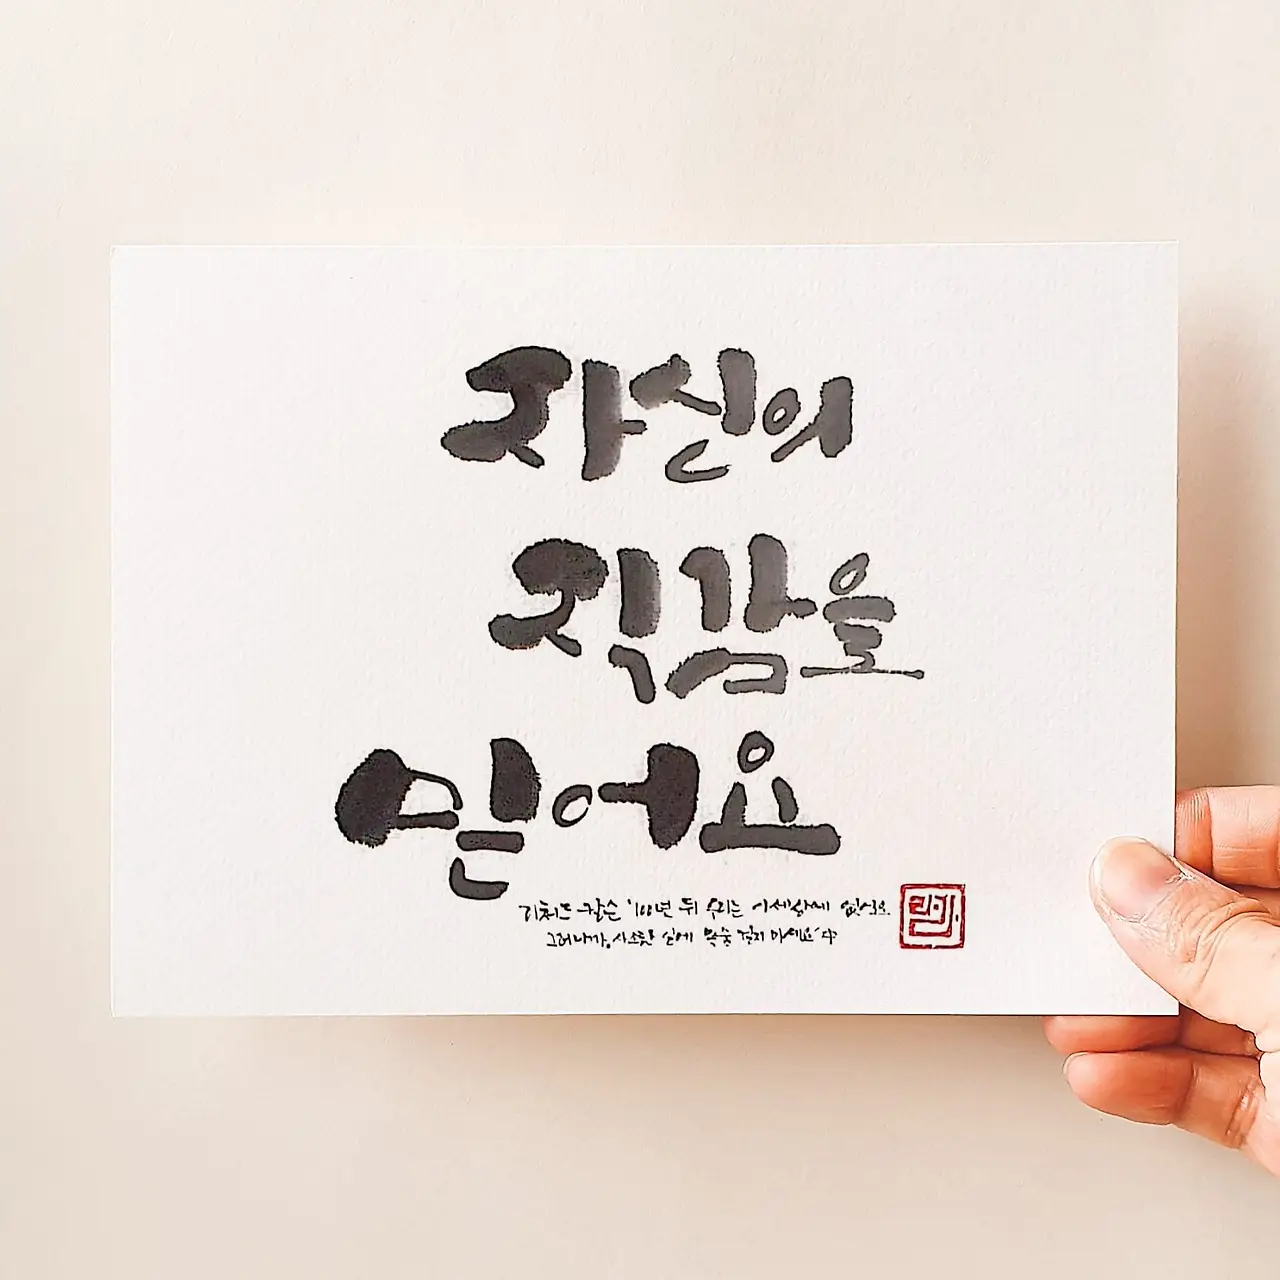 자신의
직감을
믿어요
리처드 칼슨 '100년 뒤 우리는 이세상에 없어요.
그러니까, 사소한 일에 목숨 걸지 마세요' 中